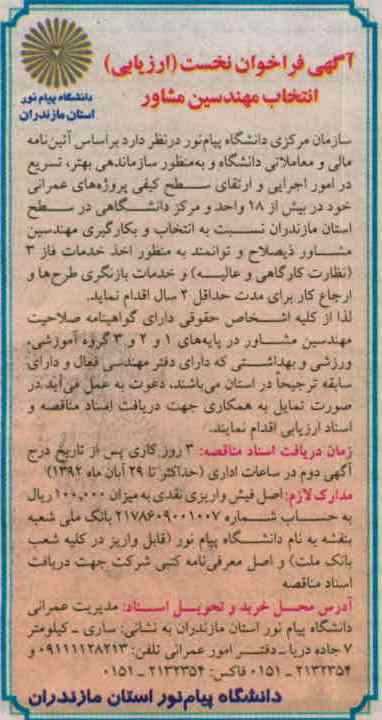 آگهی فراخوان نخست (ارزیابی)
انتخاب مهندسین مشاور
دانشگاه پیام نور
استان مازندران
سازمان مرکزی دانشگاه پیام‌نور درنظر دارد براساس آئین‌نامه
مالی و معاملاتی دانشگاه و به‌منظور سازماندهی بهتر، تسریع
در امور اجرایی و ارتقای سطح کیفی پروژه‌های عمرانی
خود در بیش از ۱۸ واحد و مرکز دانشگاهی در سطح
استان مازندران نسبت به انتخاب و بکارگیری مهندسین
مشاور ذیصلاح و توانمند به منظور اخذ خدمات فاز ۳
(نظارت کارگاهی و عالیه) و خدمات بازنگری طرح‌ها و
ارجاع کار برای مدت حداقل ۲ سال اقدام نماید.
لذا از کلیه اشخاص حقوقی دارای گواهینامه صلاحیت
مهندسین مشاور در پایه‌های ۱ و ۲ و ۳ گروه آموزشی،
ورزشی و بهداشتی که دارای دفتر مهندسی فعال و دارای
سابقه ترجیحاً در استان می‌باشند، دعوت به عمل می‌آید در
صورت تمایل به همکاری جهت دریافت اسناد مناقصه و
اسناد ارزیابی اقدام نمایند.
زمان دریافت اسناد مناقصه: ۳ روز کاری پس از تاریخ درج
آگهی دوم در ساعات اداری (حداکثر تا ۲۹ آبان ماه ۱۳۹۲)
مدارک لازم: اصل فیش واریزی نقدی به میزان ۱۰۰,۰۰۰ ریال
به حساب شماره ۲۱۷۸۶۰۹۰۰۱۰۰۷ بانک ملی شعبه
بنفشه به نام دانشگاه پیام نور (قابل واریز در کلیه شعب
بانک ملت) و اصل معرفی‌نامه کتبی شرکت جهت دریافت
اسناد مناقصه
آدرس محل خرید و تحویل اسناد: مدیریت عمرانی
دانشگاه پیام نور استان مازندران به نشانی: ساری ـ کیلومتر
۷ جاده دریا ـ دفتر امور عمرانی تلفن: ۰۹۱۱۱۱۲۸۲۱۳ و
۲۱۳۲۳۵۴ ـ ۰۱۵۱ فاکس: ۲۱۳۲۳۵۴ ـ ۰۱۵۱
دانشگاه پیام‌نور استان مازندران